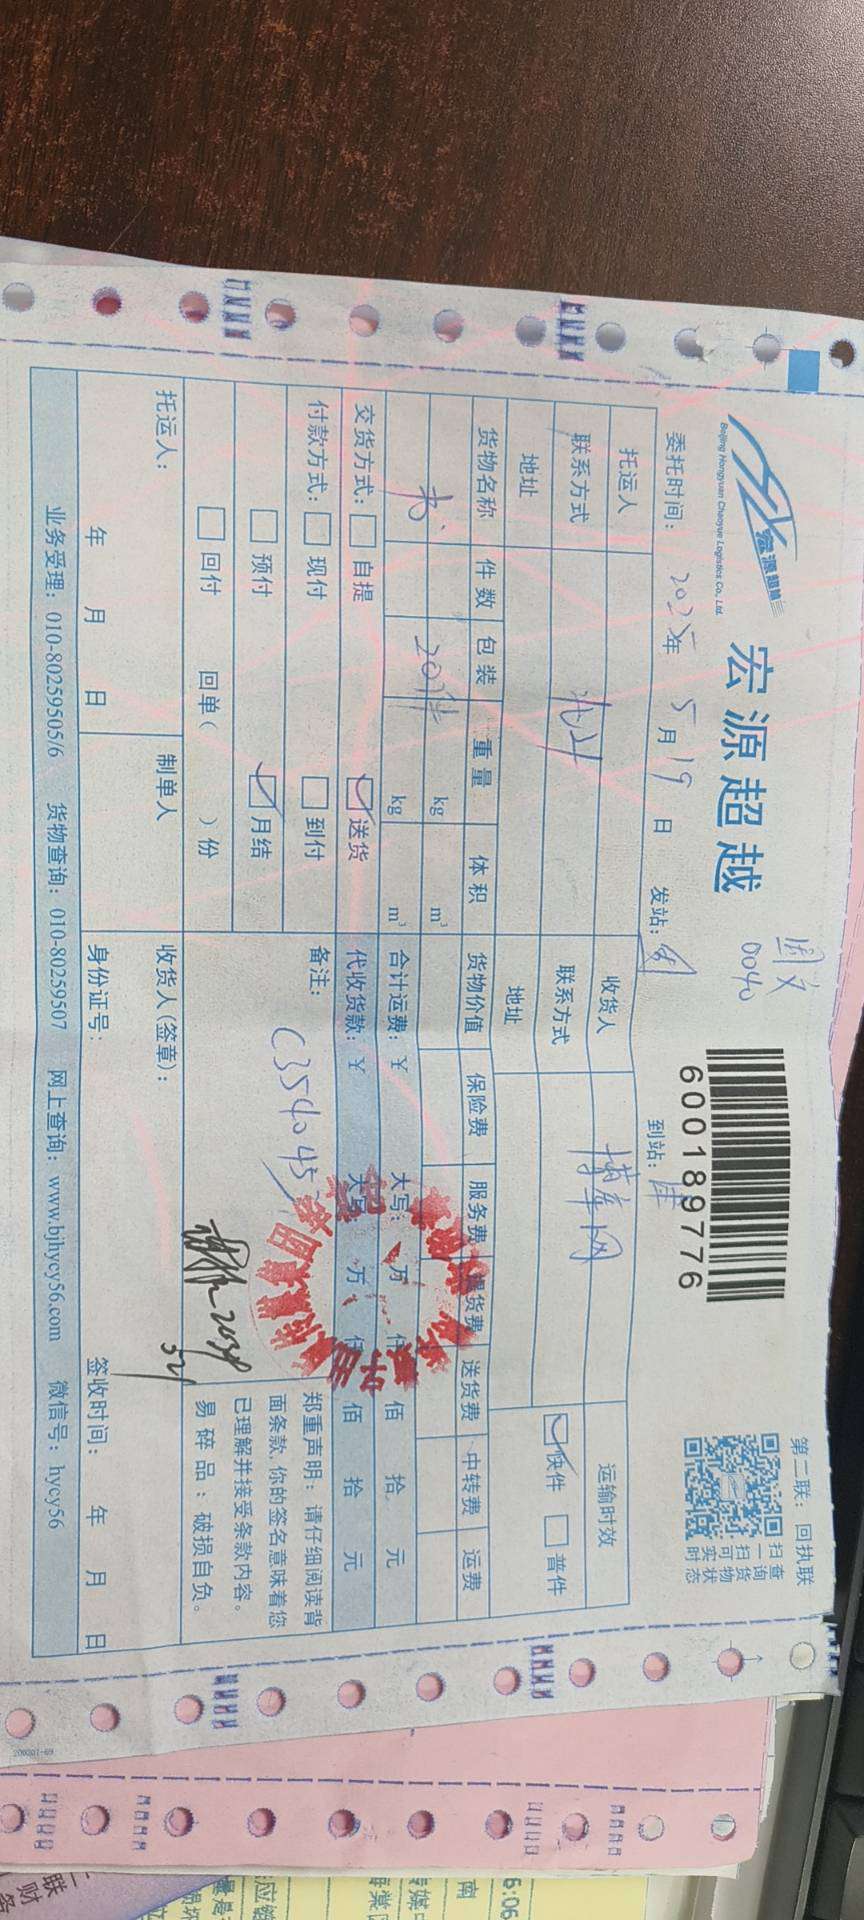 宏源超越
Beijing Hongyuan Chaoyue Logistics Co., Ltd.
宏源超越
0040
600189776
第二联：回执联
扫一扫可实时
查询货物状态
委托时间： 2025年 5月19日 发站： 到站：
托运人 收货人 博库网 运输时效
联系方式 联系方式 ☑快件 □普件
地址 地址
货物名称 件数 包装 重量 体积 货物价值 保险费 服务费 提货费 送货费 中转费 运费
书 20件 kg m³
kg m³ 合计运费：￥ 大写： 万 仟 佰 拾 元
交货方式：□自提 ☑送货 代收货款：￥ 大写 万 仟 佰 拾 元
付款方式：□现付 □到付 备注：
□预付 ☑月结 C354045
□回付 回单( )份
郑重声明：请仔细阅读背
面条款，你的签名意味着您
已理解并接受条款内容。
易碎品：破损自负。
托运人： 制单人 收货人(签章)：
5/21
年 月 日 身份证号： 签收时间： 年 月 日
业务受理：010-80259505/6 货物查询：010-80259507 网上查询：www.bjhycy56.com 微信号：hycy56